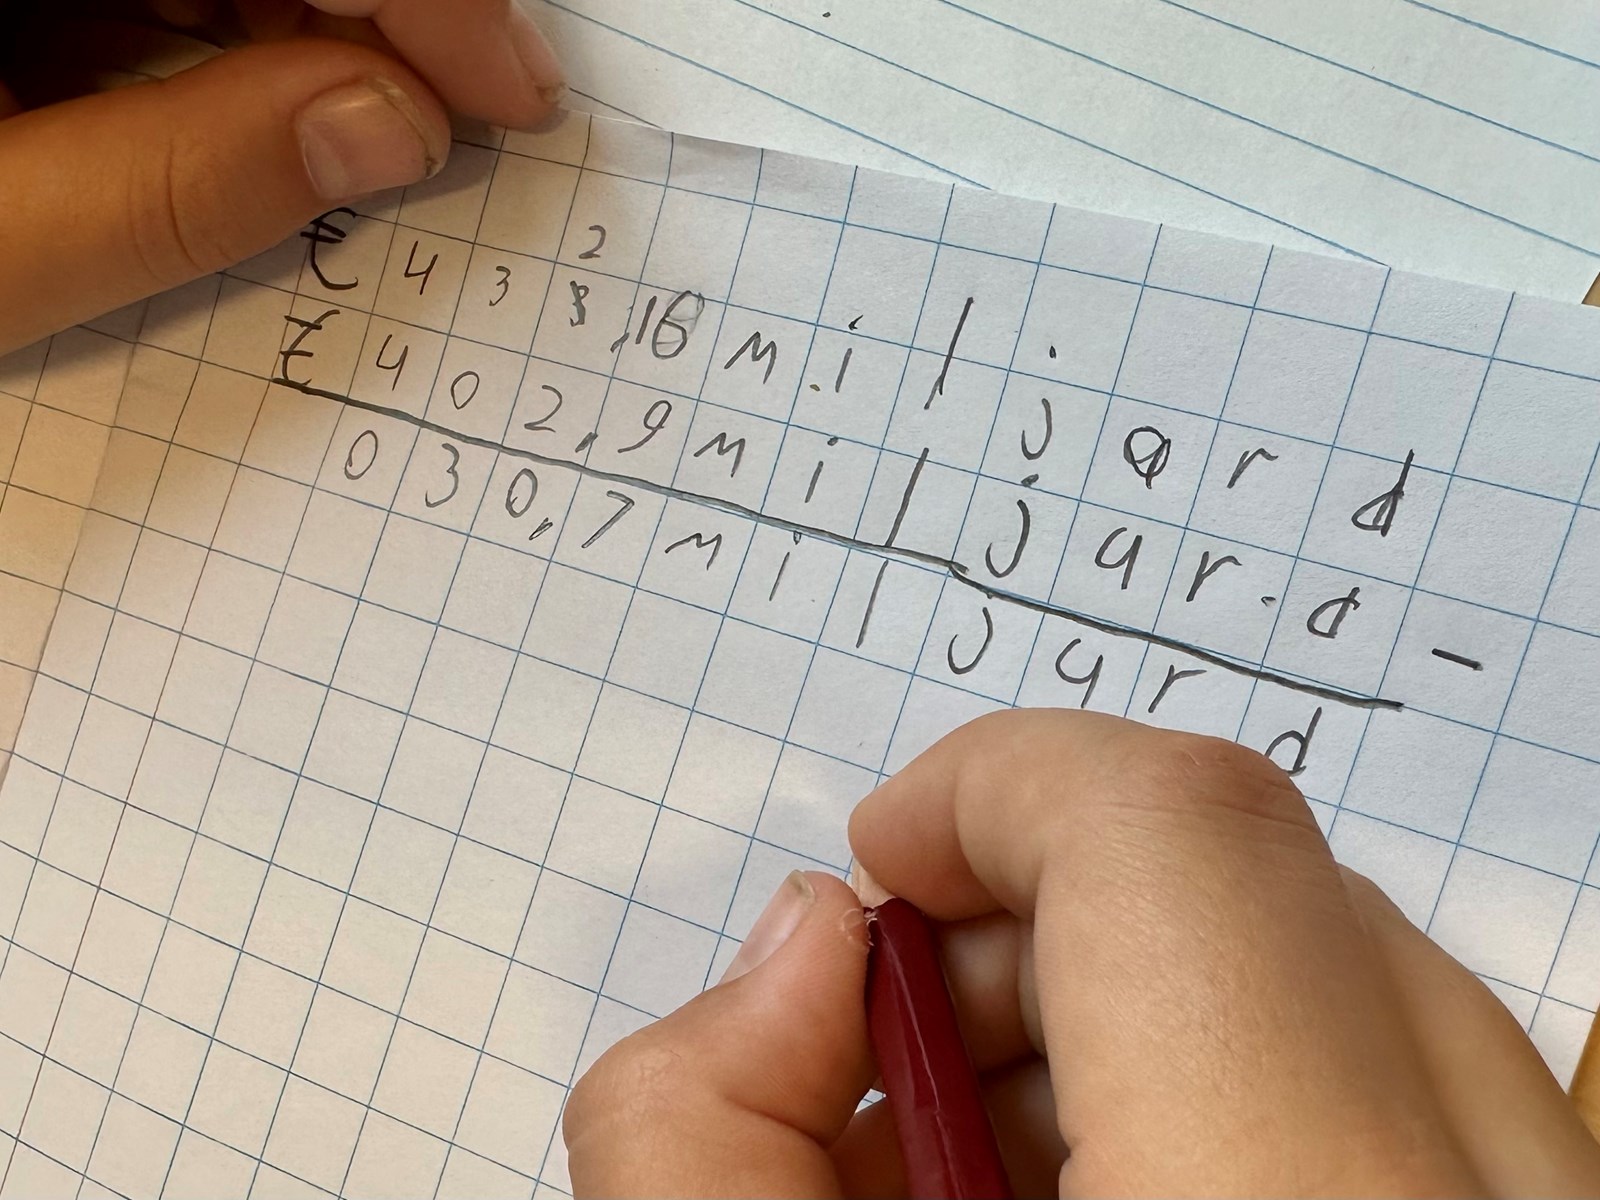 2
€ 4 3 3,16 miljard
€ 402,9 miljard -
030,7 miljard